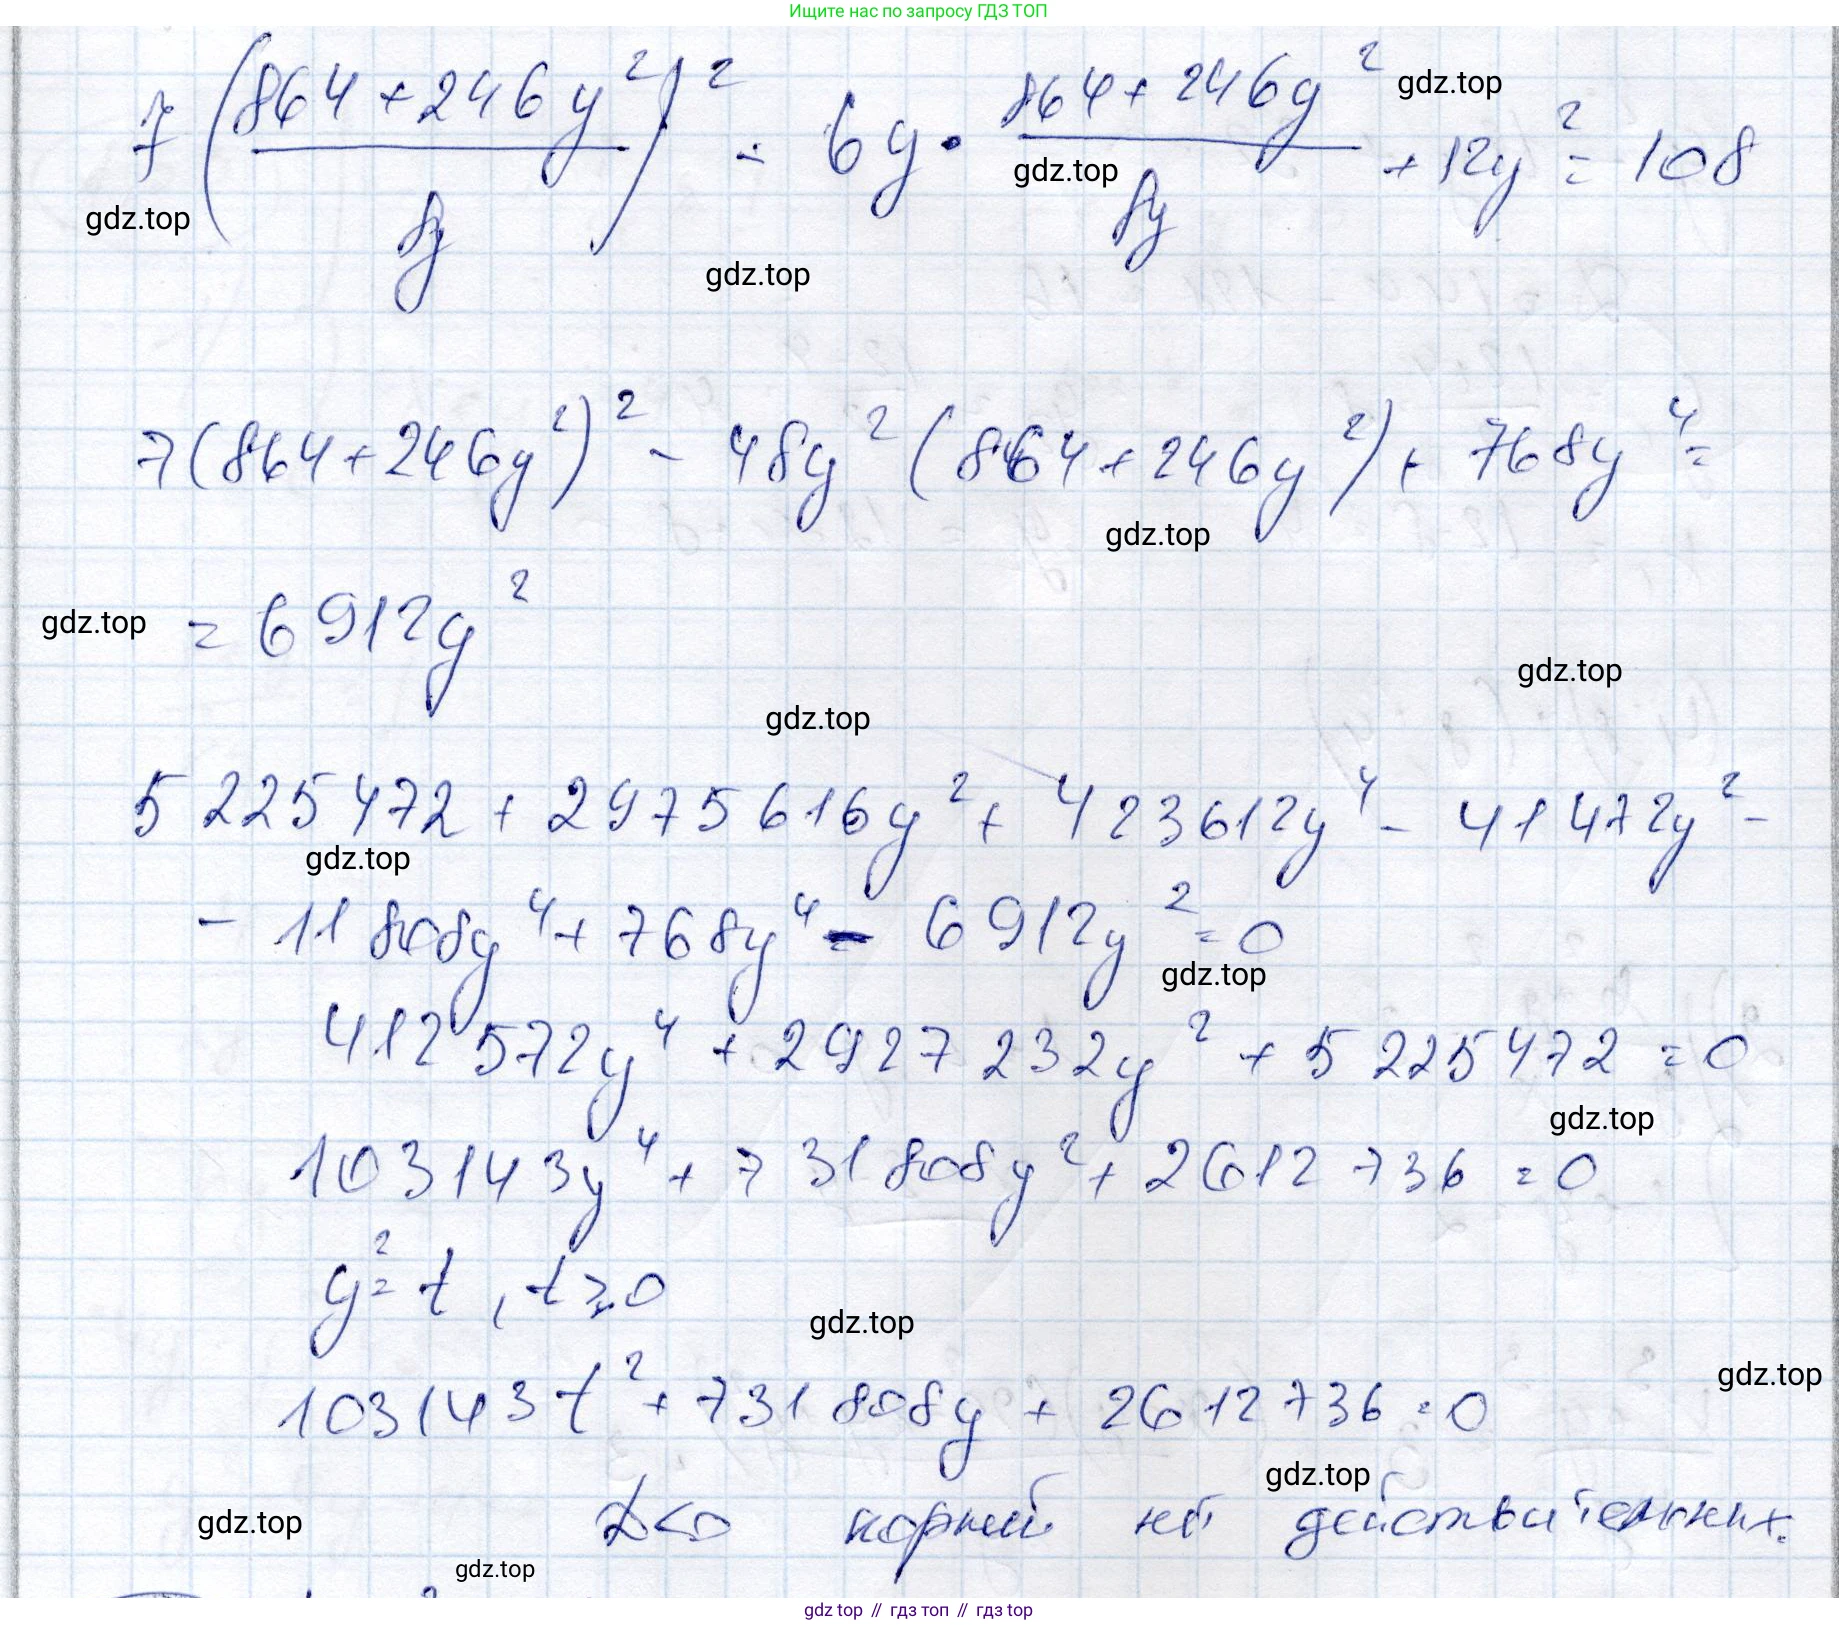 Ищите нас по запросу ГДЗ ТОП
7((864+246y²)/8y)² - 6y · (864+246y²)/8y + 12y² = 108
gdz.top
gdz.top
gdz.top
gdz.top
7(864+246y²)² - 48y²(864+246y²) + 768y⁴ =
gdz.top
= 6912y²
gdz.top
gdz.top
gdz.top
5225472 + 2975616y² + 423612y⁴ - 41472y² -
gdz.top
- 11808y⁴ + 768y⁴ - 6912y² = 0
gdz.top
412572y⁴ + 2927232y² + 5225472 = 0
gdz.top
103143y⁴ + 731808y² + 2612736 = 0
y² = t, t ≥ 0
gdz.top
gdz.top
103143t² + 731808y + 2612736 = 0
gdz.top
D<0 корней нет действительных.
gdz.top
gdz.top
gdz top // гдз топ // гдз top